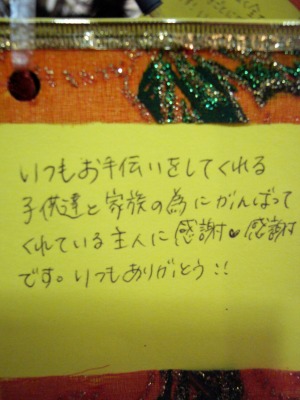 いつもお手伝いをしてくれる
子供達と家族の為にがんばって
くれている主人に感謝♥感謝
です。いつもありがとう!!